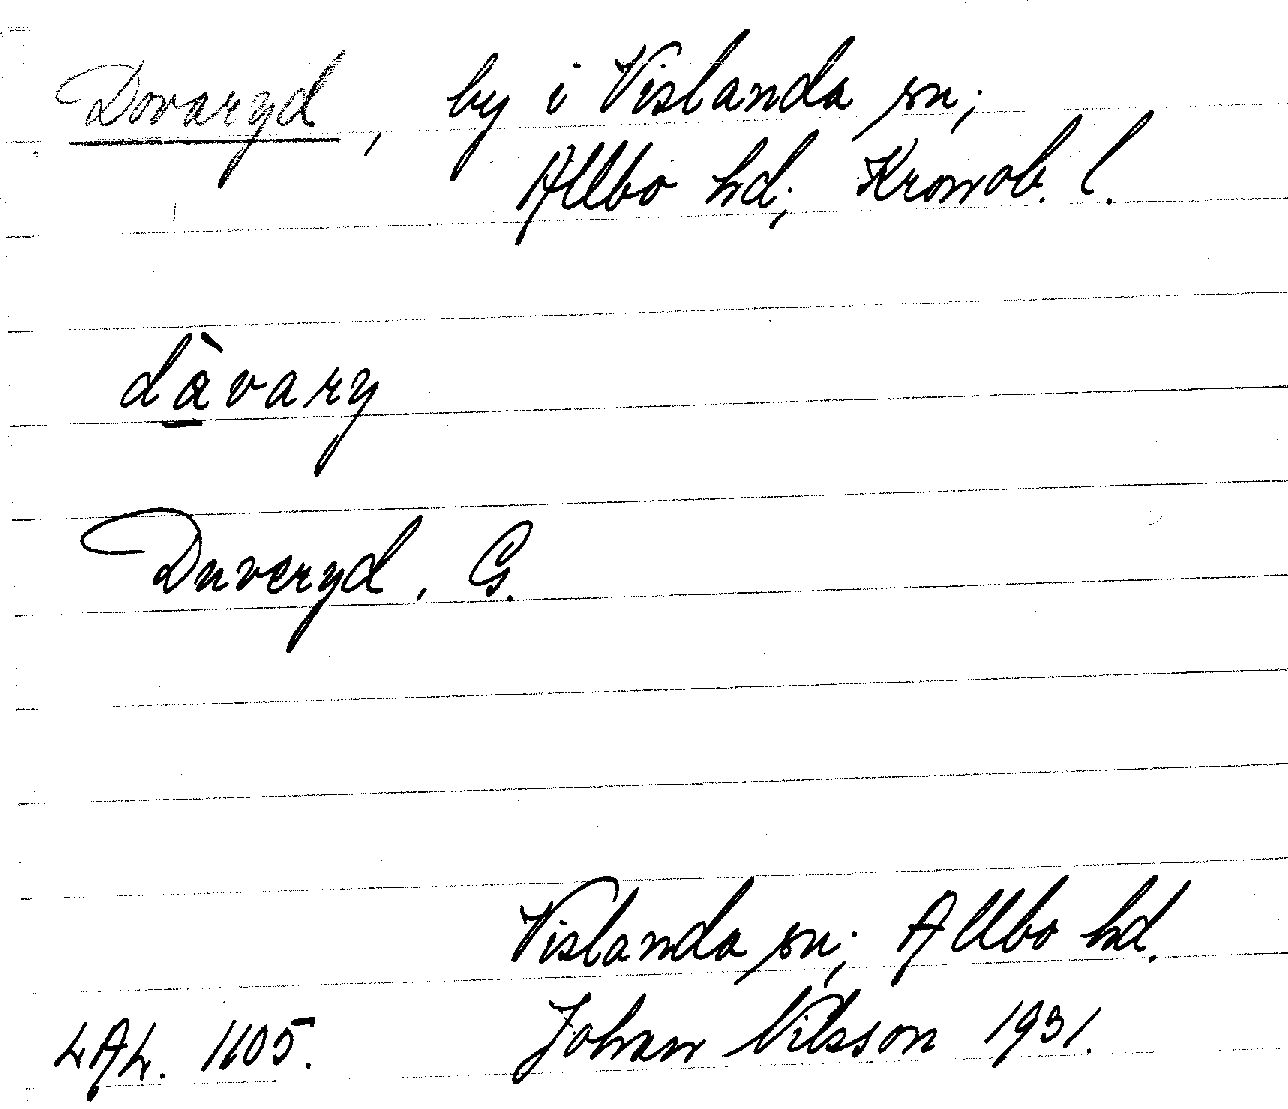 Dovaryd, by i Vislanda sn;
Allbo hd; Kronob. l.
dàvary
Duveryd. G.
Vislanda sn; Allbo hd.
LAL. 1105. Johan Nilsson 1931.